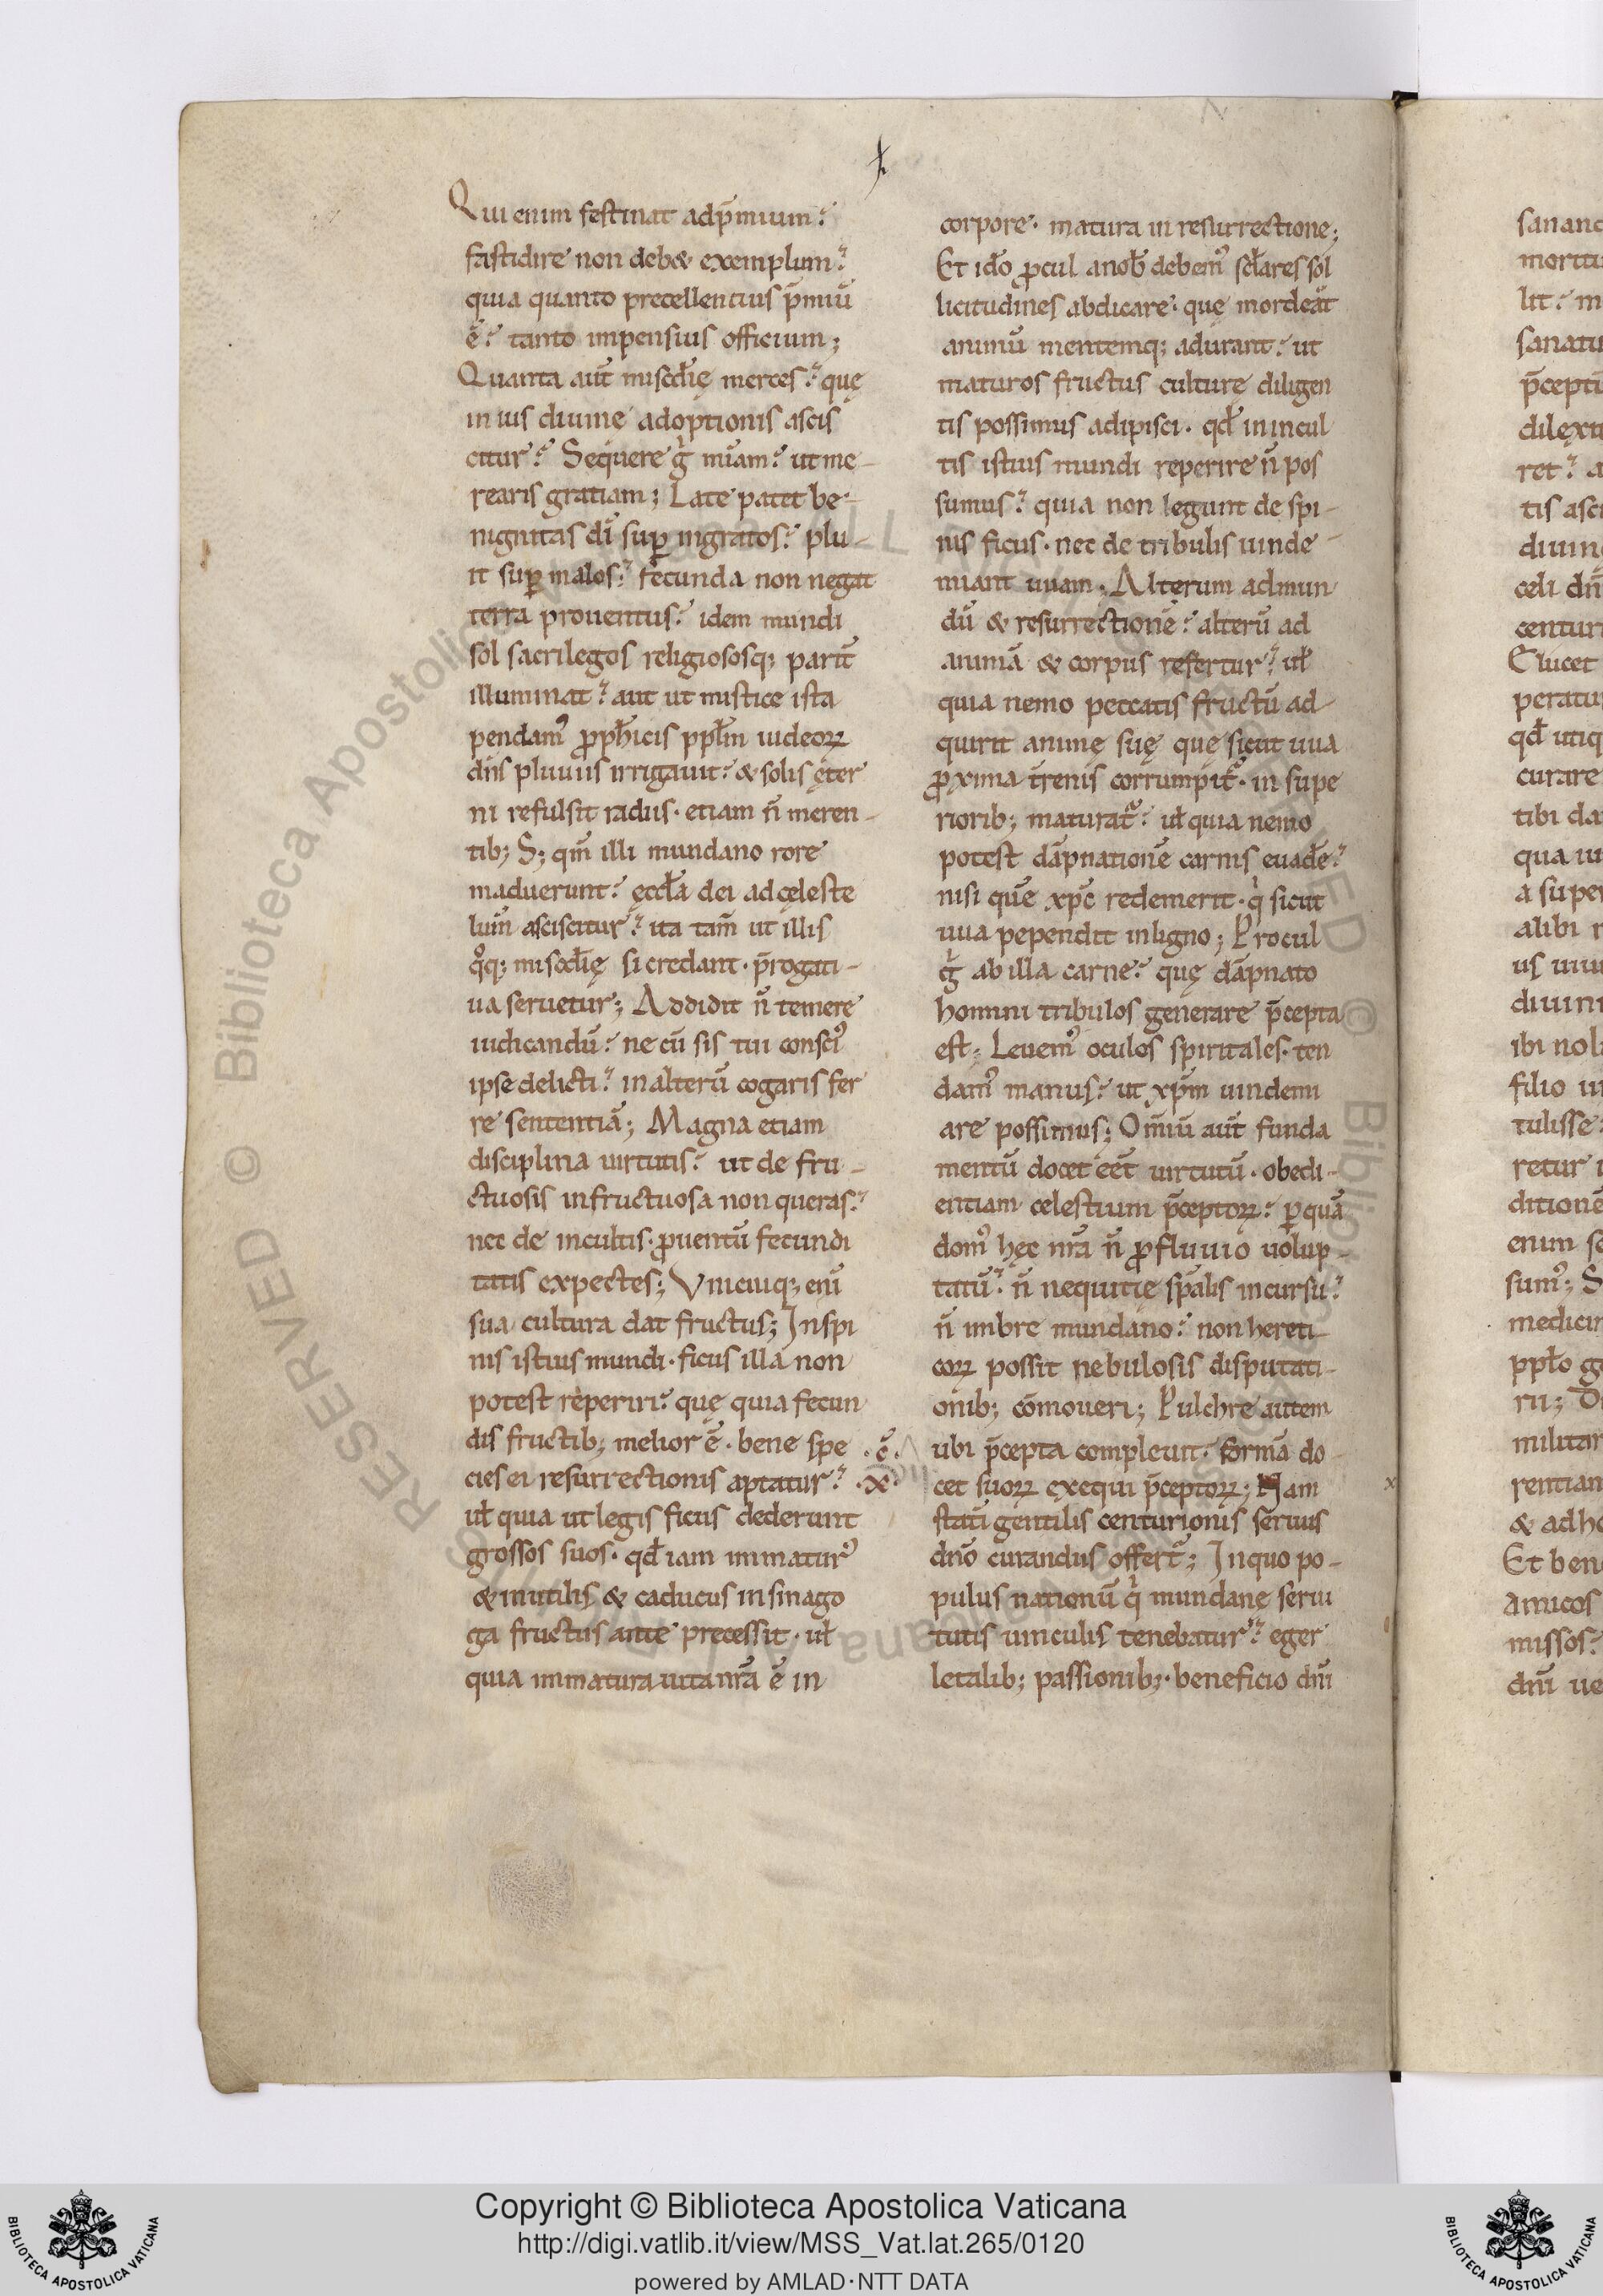 Qui enim festinat adp̄mium?
fastidire non deb& exemplum?
quia quanto precellentius p̄miū
ē? tanto impensius officium;
Quanta aut̄ misc̄dię merces? quę
in ius diuine adoptionis ascis
citur? Sequere g̊ miām? ut me-
rearis gratiam; Late patet be-
nignitas dī sup ingratos? plu-
it sup malos? fecunda non negat
terra prouentus? idem mundi
sol sacrilegos religiososq; parit̄
illuminat? aut ut mistice ista
pendam᾽ ꝓph̄icis ppl̄m iudeoꝝ
dn̄s pluuiis irrigauit? & solis ęter
ni refulsit radiis· etiam n̄ meren-
tib; S; qm̄ illi mundano rore
maduerunt? ęccl̄a dei ad cęleste
lum̄ asciscitur? ita tam̄ ut illis
q̊q; misc̄dię si credant· p̄rogati-
ua seruetur; Addidit n̄ temere
iudicandū? ne cū sis tui consci᾽
ipse delicti? in alterū cogaris fer
re sententiā; Magna etiam
disciplina uirtutis? ut de fru-
ctuosis infructuosa non queras?
nec de incultis· ꝓuentū fecundi
tatis expectes; Vnicuiq; enī
sua cultura dat fructus; In spi
nis istius mundi· ficus illa non
potest reperiri? quę quia fecun
dis fructib; melior ē· bene spe ·ē·
cies ei resurrectionis aptatur? ·x·
ul̄ quia ut legis ficus dederunt
grossos suos· qd̄ iam immatur᾽
& inutilis & caducus in sinago
ga fructus ante precessit· ul̄
quia immatura uita nr̄a ē in
corpore· matura in resurrectione;
Et ido̅ ꝓcul anob̄ debem᾽ scl̄ares sol
licitudines abdicare· quę mordeāt
animū mentemq; adurant? ut
maturos fructus culturę diligen
tis possimus adipisci· qd̄ in incul
tis istius mundi reperire n̄ pos
sumus? quia non legunt de spi-
nis ficus· nec de tribulis uinde-
miant uuam· Alterum ad mun
dū & resurrectionē? alterū ad
animā & corpus refertur? ul̄
quia nemo peccatis fructū ad-
quirit animę suę quę sicut uua
ꝓxima tr̄enis corrumpit᷑· in supe
riorib; maturat᷑? ul̄ quia nemo
potest dāpnationē carnis euade᷑?
nisi quē xp̄c redemerit· q̇ sicut
uua pependit in ligno; Procul
g̊ ab illa carne? quę dāpnato
homini tribulos generare p̄cepta
est; Leuem᾽ oculos spiritales· ten
dam᾽ manus? ut xp̄m uindemi
are possimus; Om̄iū aut̄ funda
mentū docet ēet̄ uirtutū· obedi-
entiam celestium p̄ceptoꝝ? ꝑ quā
dom᾽ hęc nr̄a n̄ ꝓfluuio uolup-
tatū? n̄ nequitię sp̄alis incursu?
n̄ imbre mundano? non hereti-
coꝝ possit nebulosis disputati-
onib; cōmoueri; Pulchre autem
ubi p̄cepta compleuit· formā do-
cet suoꝝ exequi p̄ceptoꝝ; Nam
statī gentilis centurionis seruus
dn̄o curandus offert᷑; In quo po-
pulus nationū q̇ mundane serui
tutis uinculis tenebatur? eger
letalib; passionib;· beneficio dn̄i
sananc
moritu
lit? m
sanatu
p̄ceptū
dilexit
ret? a
tis asci
diuin
celi dn̄
centuri
Elucet
peratu
qd̄ utiq
curare
tibi da
qua ui
a super
alibi r
us uiu
diuini
ibi noli
filio u
tulisse
retur i
ditionē
enim se
sum᾽; S
medicin
ppl̄o ge
rii; D
militar
rentiam
& ad ho
Et ben
amicos
missos?
dn̄i ue
Copyright © Biblioteca Apostolica Vaticana
http://digi.vatlib.it/view/MSS_Vat.lat.265/0120
powered by AMLAD·NTT DATA
BIBLIOTECA APOSTOLICA VATICANA
BIBLIOTECA APOSTOLICA VATICANA